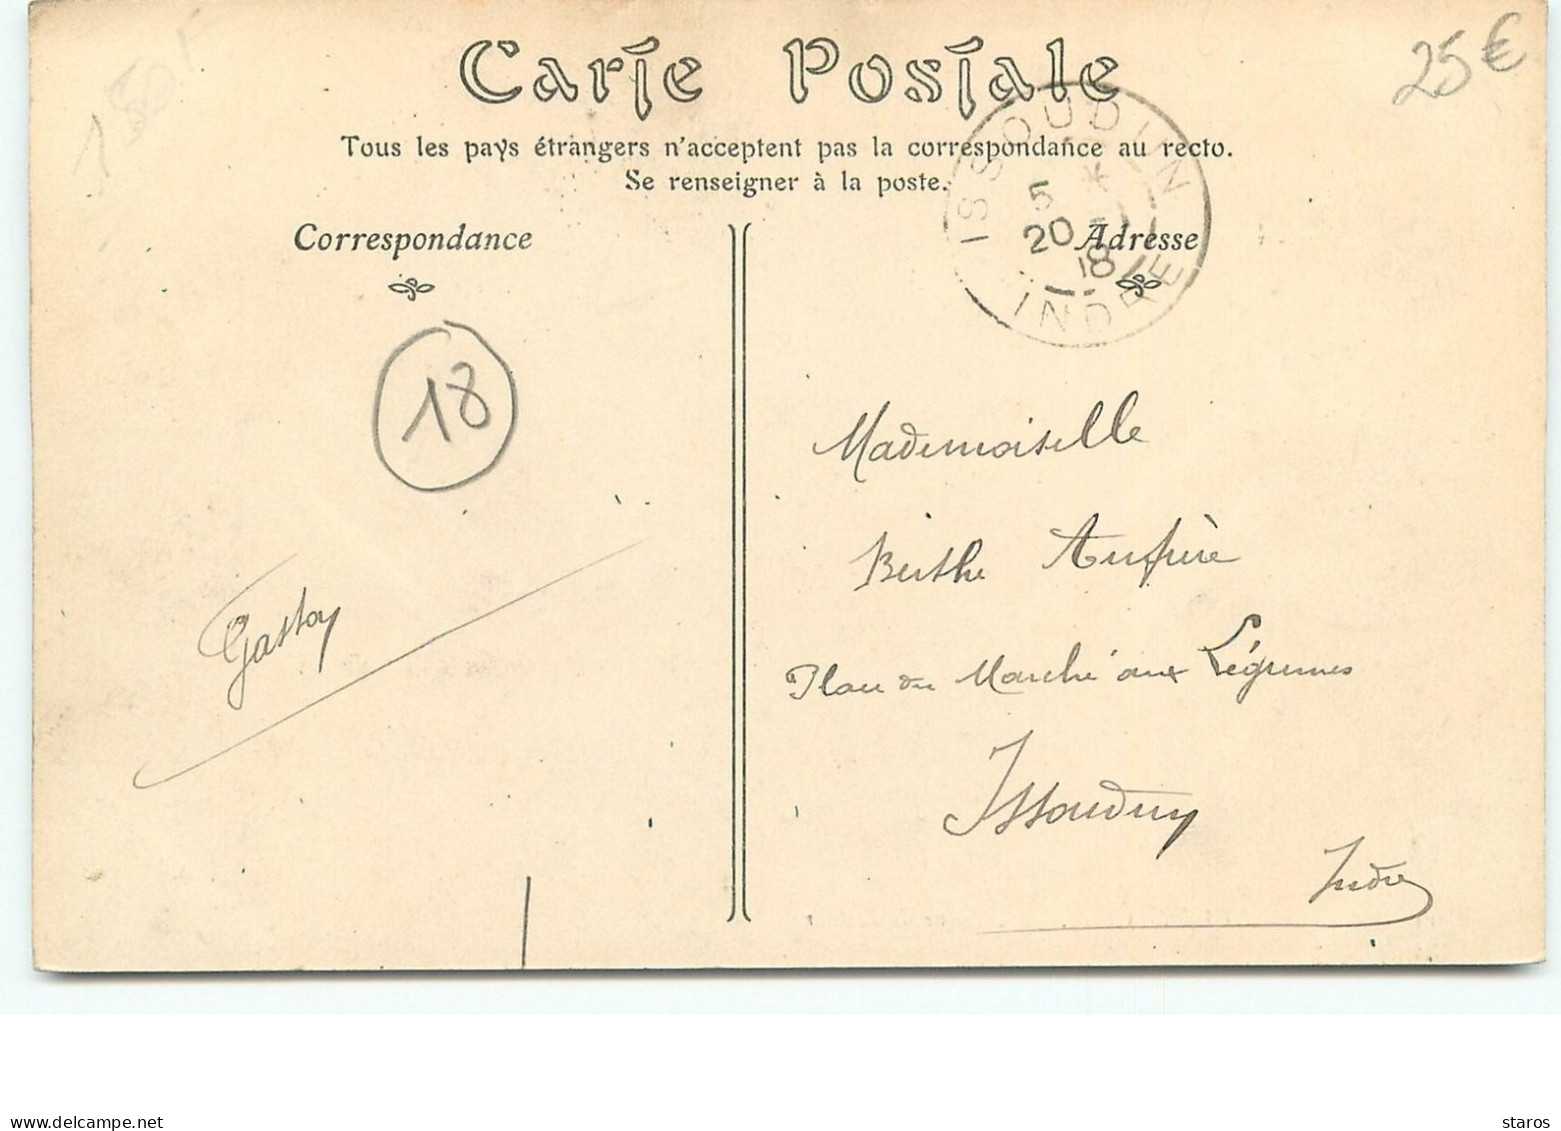 Carte Postale
25€
Tous les pays étrangers n'acceptent pas la correspondance au recto.
Se renseigner à la poste.
Correspondance
Adresse
ISSOUDUN
5 *
20
18
INDRE
18
Mademoiselle
Berthe Aufrère
Gaston
Place du Marché aux Légumes
Issoudun
Indre
www.delcampe.net
staros